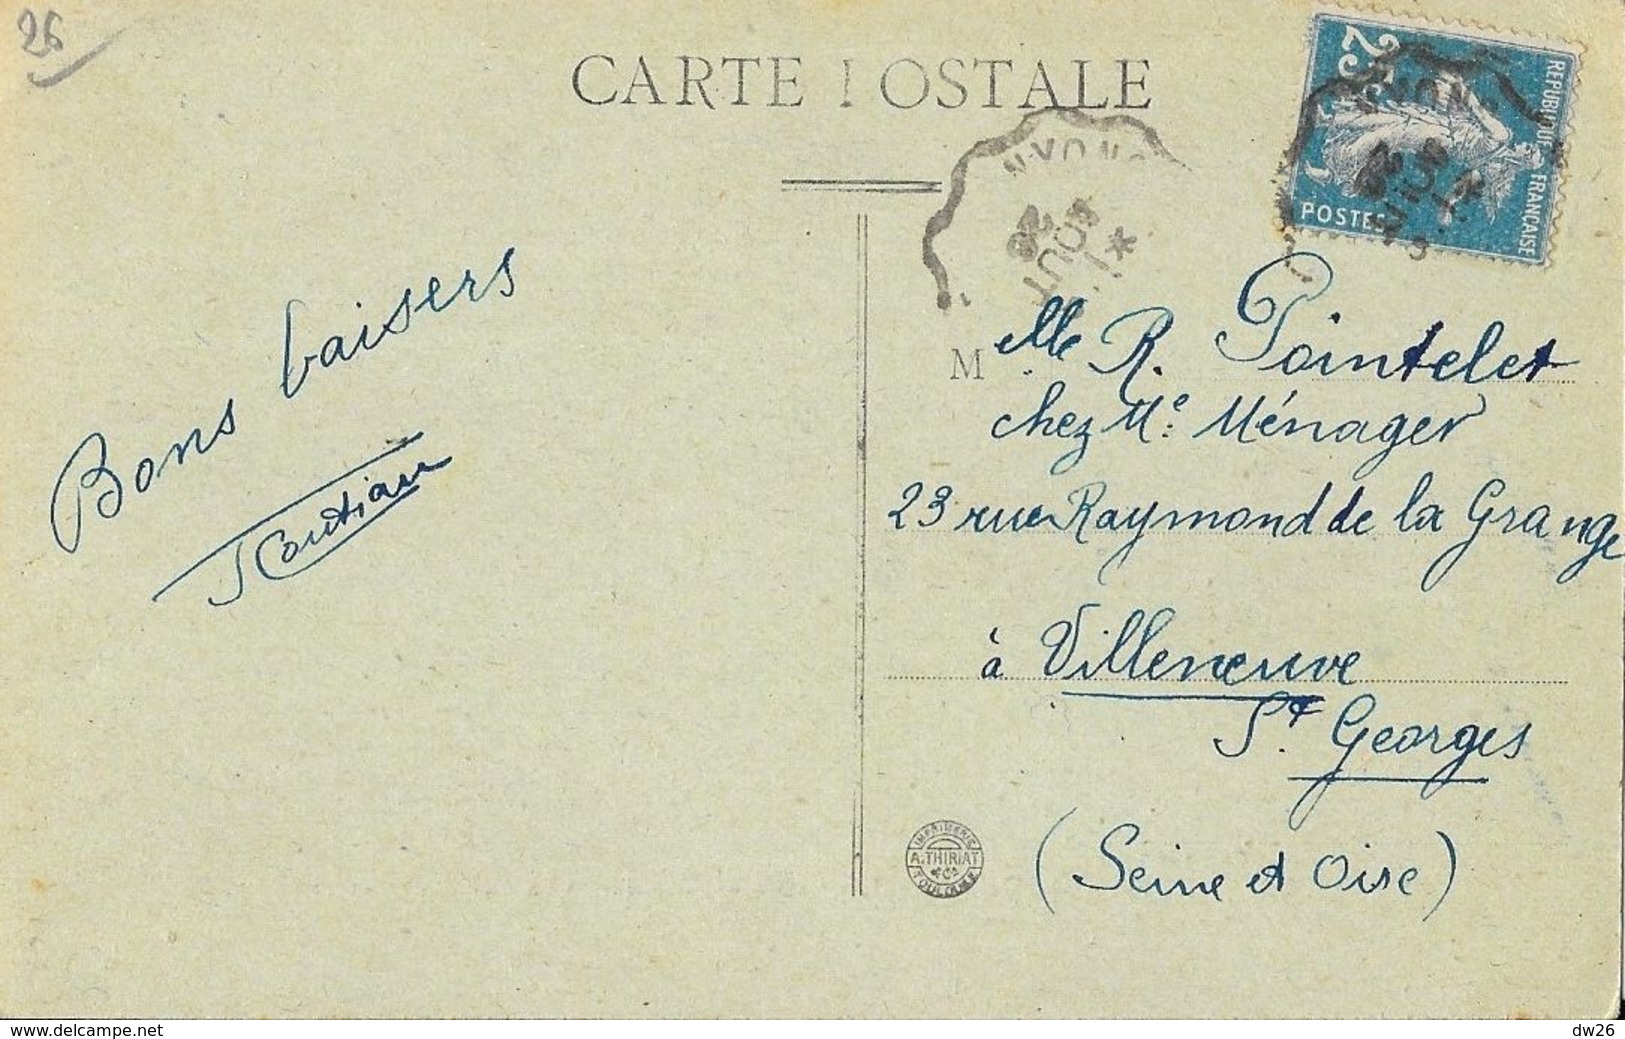 26
CARTE POSTALE
25
REPUBLIQUE FRANÇAISE
POSTES
NYONS
*1
AOUT
26
Bons baisers
Melle R. Pointelet
chez Me Ménager
23 rue Raymond de la Grange
à Villeneuve
St. Georges
(Seine et Oise)
IMPRIMERIE
A. THIRIAT
& Cie
TOULOUSE
www.delcampe.net
dw26